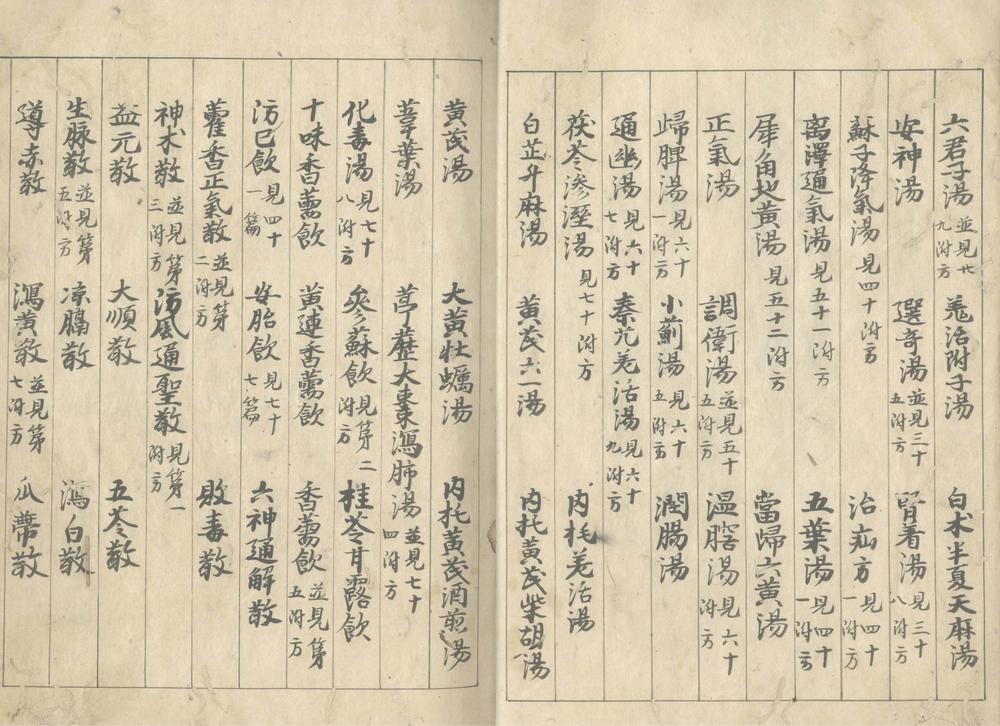 六君子湯 並見廿九附方 羗活附子湯 白术半夏天麻湯
安神湯 選奇湯 並見三十五附方 腎着湯 見三十八附方
蘇子降氣湯 見四十附方 治疝方 見四十一附方
离澤通氣湯 見五十一附方 五葉湯 見四十一附方
犀角地黃湯 見五十二附方 當歸六黃湯
正氣湯 調衛湯 並見五十五附方 温膀湯 見六十附方
歸脾湯 見六十一附方 小薊湯 見六十五附方 潤腸湯
通幽湯 見六十七附方 秦艽羗活湯 見六十九附方
茯苓滲溼湯 見七十附方 内托羗活湯
白芷升麻湯 黃芪六一湯 内托黃芪柴胡湯
黃芪湯 大黃牡蠣湯 内托黃芪酒煎湯
葦葉湯 葶藶大棗瀉肺湯 並見七十四附方
化毒湯 見七十八附方 參蘇飲 見第二附方 桂苓甘露飲
十味香薷飲 黃連香薷飲 香薷飲 並見第五附方
防已飲 見四十一篇 安胎飲 見七十七篇 六神通解散
藿香正氣散 並見第二附方 敗毒散
神术散 並見第三附方 防風通聖散 見第一附方
益元散 大順散 五苓散
生脉散 並見第五附方 凉膈散 瀉白散
導赤散 瀉黃散 並見第七附方 瓜蔕散